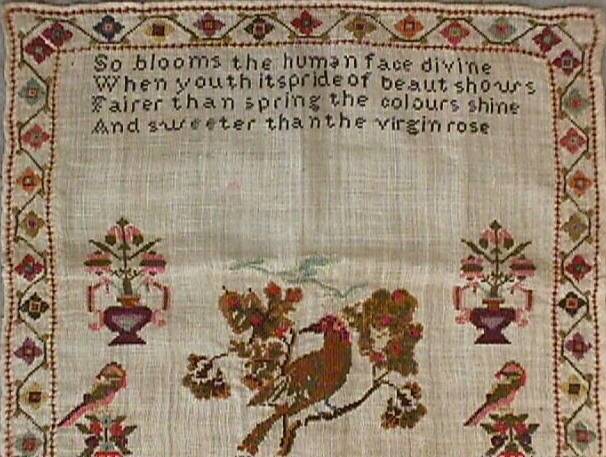 So blooms the human face divine
When youth itspride of beaut shows
Fairer than spring the colours shine
And sweeter thanthe virgin rose